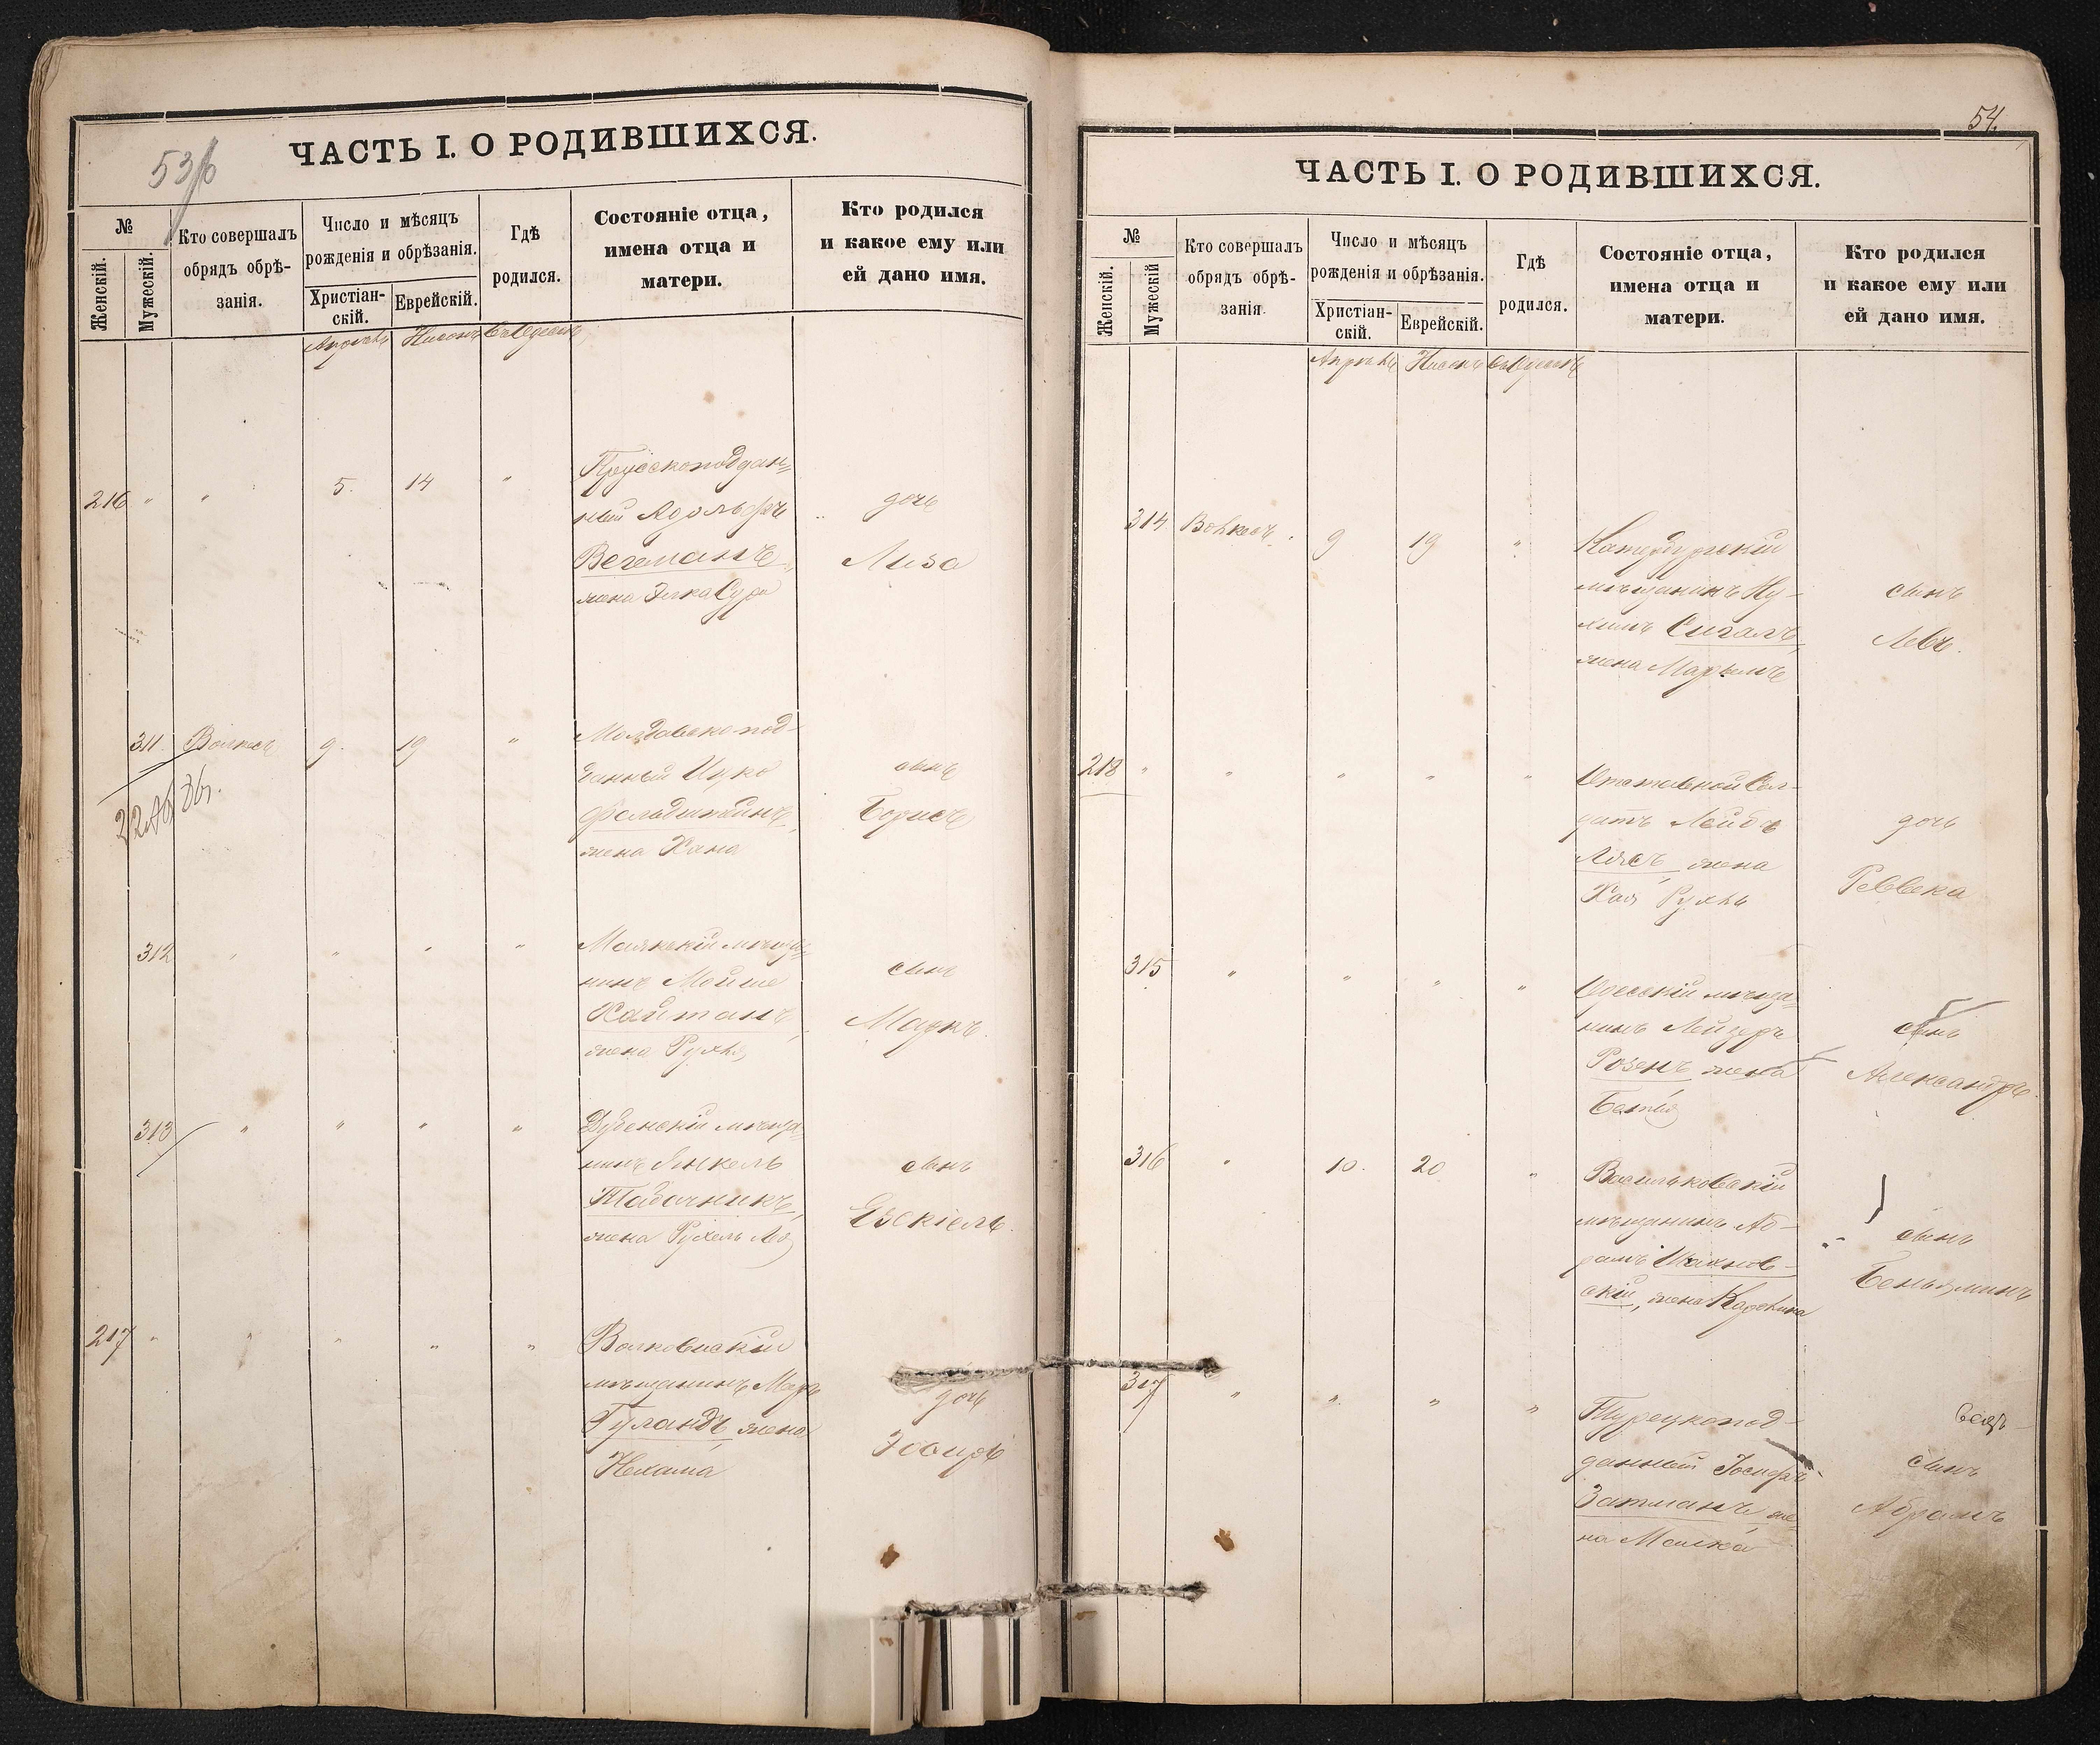 53/б
ЧАСТЬ I. О РОДИВШИХСЯ.
№
Женскій.
Мужескій.
Кто совершалъ
обрядъ обрѣ-
занія.
Число и мѣсяцъ
рожденія и обрѣзанія.
Христіан-
скій.
Еврейскій.
Гдѣ
родился.
Состояніе отца,
имена отца и
матери.
Кто родился
и какое ему или
ей дано имя.
Апрѣль Нисонъ Въ Одессѣ
216 " " 5. 14 "
Прусскоподдан=
ный Адольфъ
Вегеманъ,
жена Элка Сура
дочь
Лиза
311 Волкесъ 9. 19 "
Молдавско-под-
данный Ицко
Фельдштейнъ,
жена Хана
сынъ
Борисъ
312 " " " "
Маякскій мѣща=
нинъ Мойше
Хайтанъ,
жена Рухля
сынъ
Маркъ.
313 " " " "
Дубенскій мѣща
нинъ Янкель
Табачникъ,
жена Рухель Лея
сынъ
Езекіель.
217 " " " " "
Волковискій
мѣщанинъ
Гуландъ, жена
Нехама
дочь
Эсѳирь
54.
ЧАСТЬ I. О РОДИВШИХСЯ.
№
Женскій.
Мужескій
Кто совершалъ
обрядъ обрѣ-
занія.
Число и мѣсяцъ
рожденія и обрѣзанія.
Христіан-
скій.
Еврейскій.
Гдѣ
родился.
Состояніе отца,
имена отца и
матери.
Кто родился
и какое ему или
ей дано имя.
Апрѣль Нисонъ Въ Одессѣ
314 Волкесъ. 9 19 "
Катербургскій
мѣщанинъ Ну-
химъ Сигалъ,
жена Маріемъ
сынъ
Левъ.
218 " " " " "
Отставной Сол-
датъ Лейба
жена
Хая Рухль
дочь
Ревека
315 " " " "
Одесскій мѣща
нинъ Лейзеръ
Розенъ, жена
Батья
сынъ
Александръ.
316 " 10. 20 "
Васильковскій
мѣщанинъ Аб-
рамъ Шахнов-
скій, жена
сынъ
Беньяминъ
317 " " " "
Турецкопод-
данный Іосифъ
Затманъ, же-
на Малка
сынъ
Абрамъ